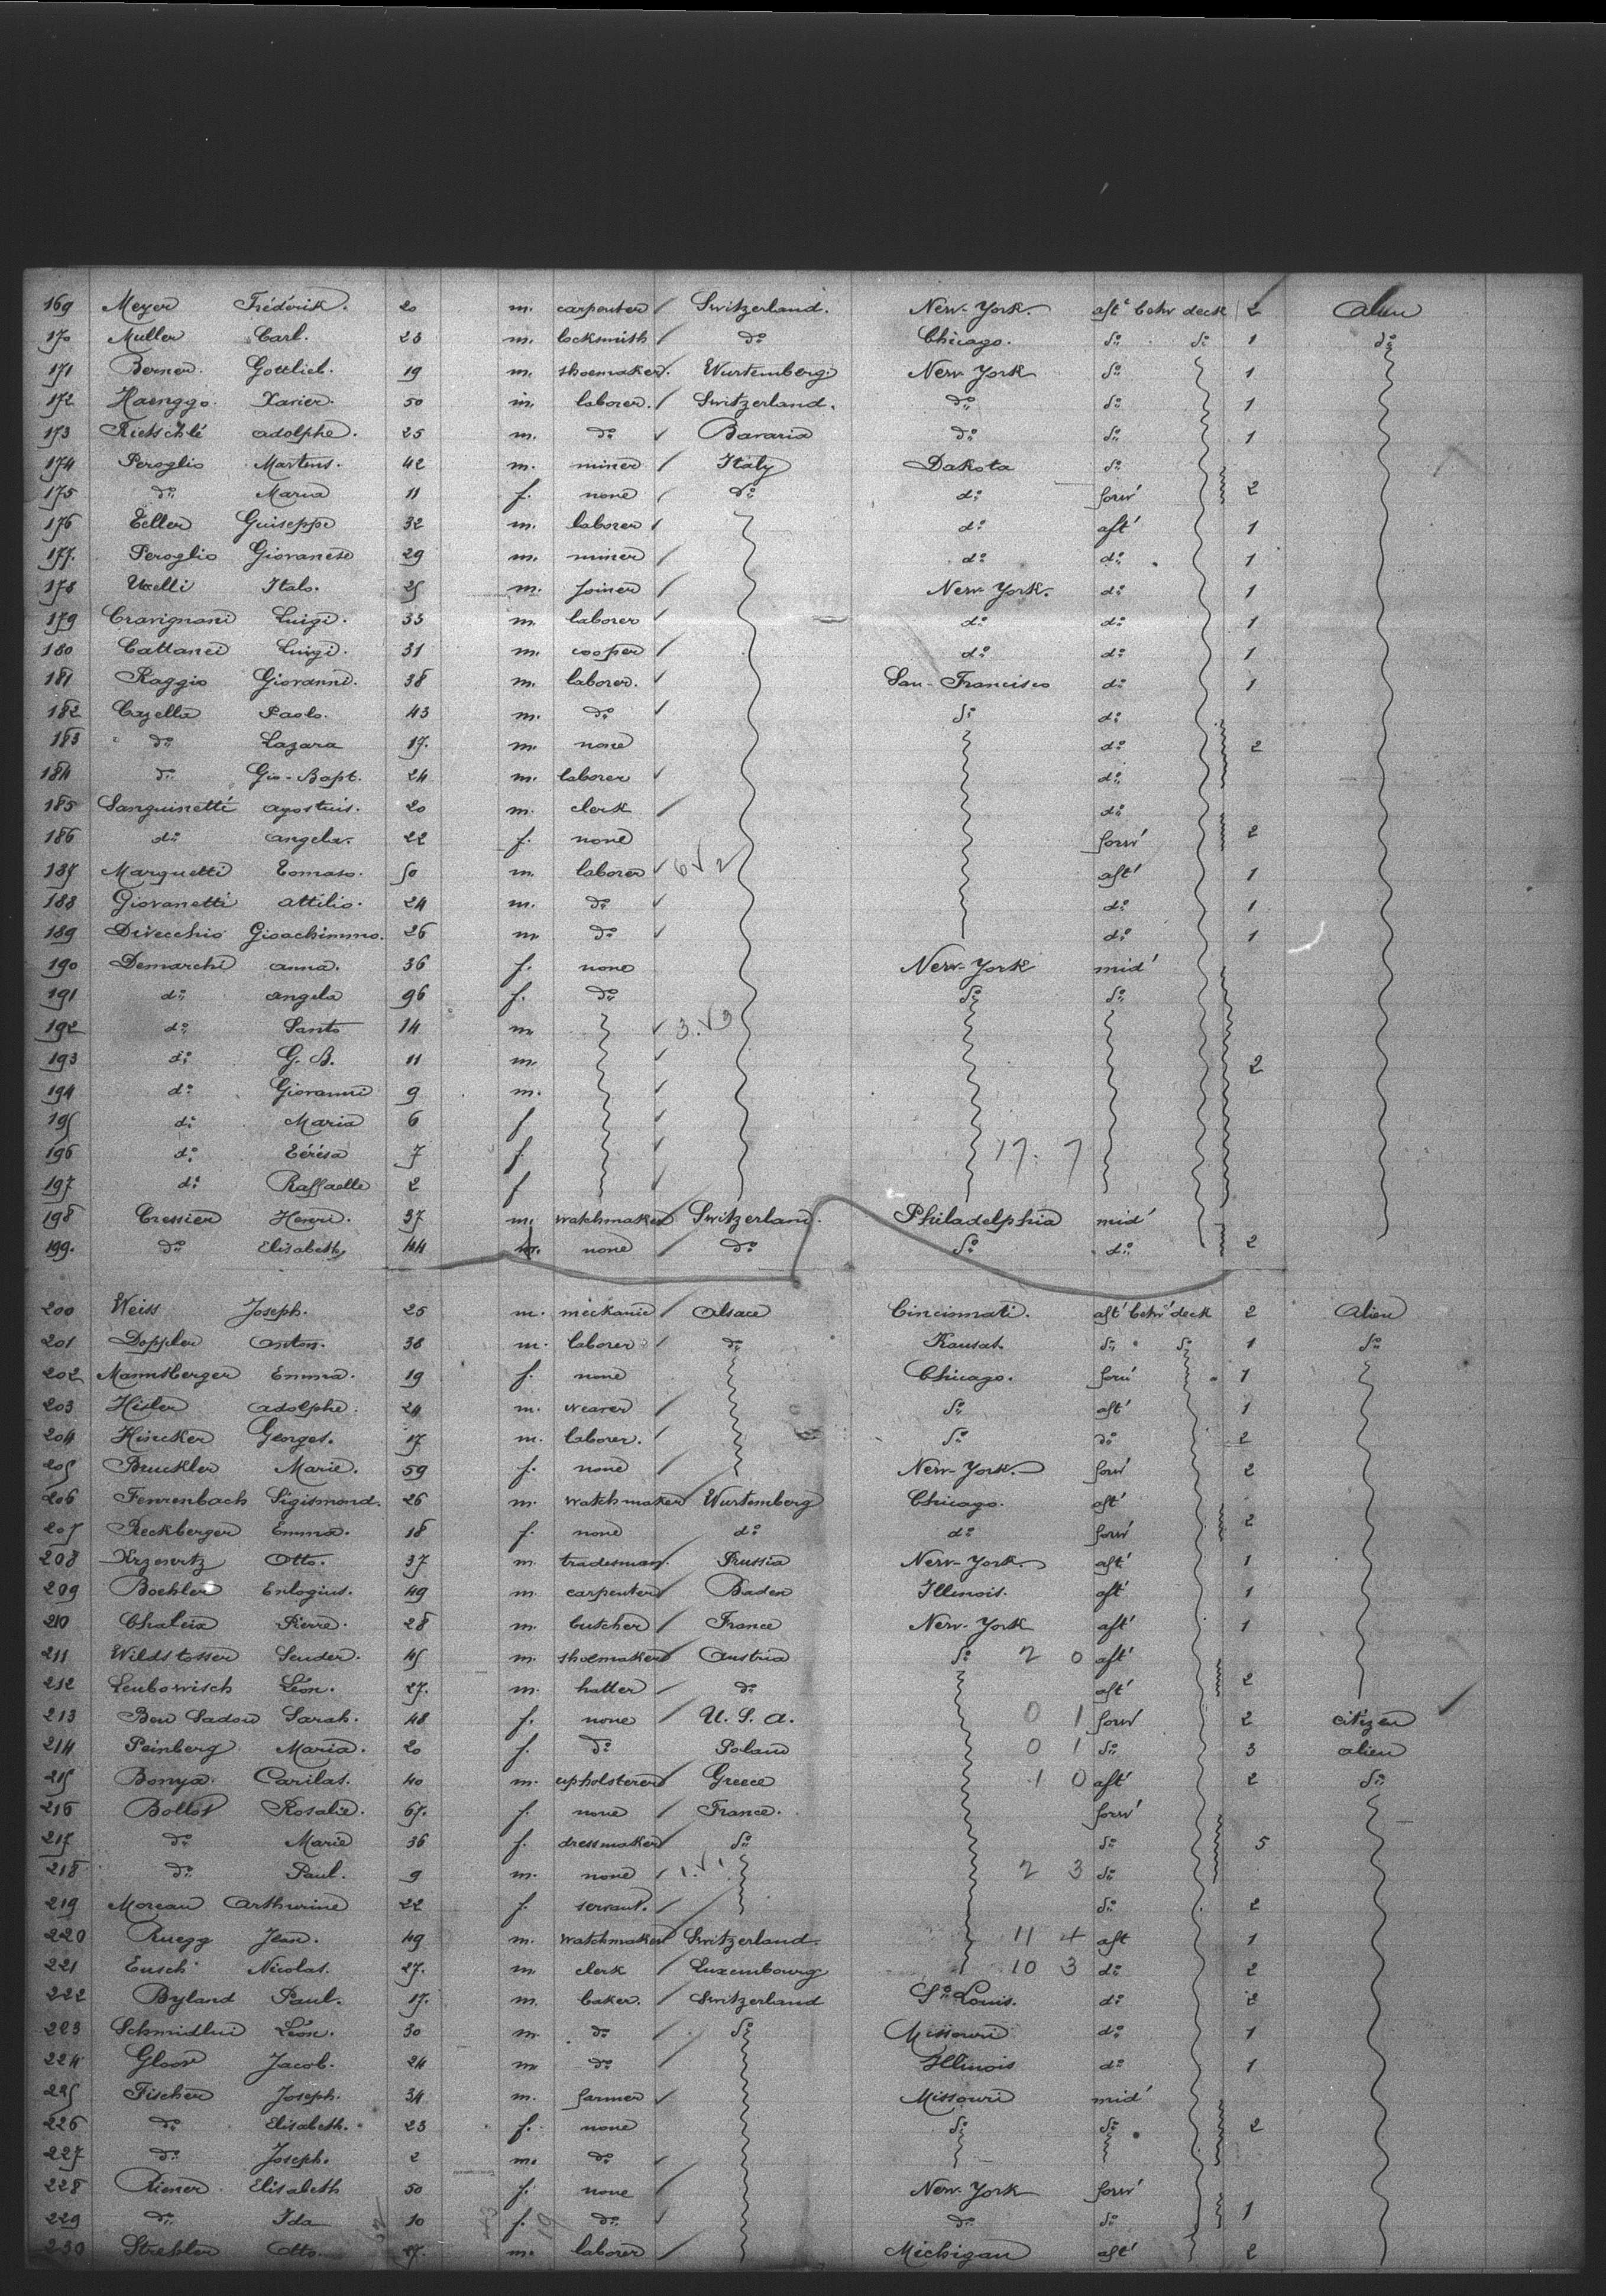 169 Meyer Frédérik. 20 m. carpenter Switzerland. New-York. aft betw deck 2 alien
170 Muller Carl. 23 m. locksmith do Chicago. do do 1 do
171 Berner. Gottlieb. 19 m. shoemaker. Wurtemberg New York do 1
172 Haenggo. Xavier. 50 m. laborer. Switzerland. do do 1
173 Rietschlé adolphe. 25 m. do Bavaria do do 1
174 Peroglio Martens. 42 m. miner Italy Dakota do
175 do Maria 11 f. none do do forw' 2
176 Teller Guiseppe 32 m. laborer do aft' 1
177. Peroglio Giovanese 29 m. miner do do 1
178 Italo. 25 m. joiner New York. do 1
179 Cravignani Luigi. 33 m. laborer do do 1
180 Cattanei Luigi. 31 m. cooper do do 1
181 Raggio Giovanni. 38 m. laborer. San-Francisco do 1
182 Cazella Paolo. 43 m. do do do
183 do Lazara 17. m. none do 2
184 do Gio-Bapt. 24 m. laborer do
185 Sanguinetti agostuis. 20 m. clerk do
186 do angela. 22 f. none forw' 2
187 Marguetti Tomaso. 50 m. laborer 6 √ 2 aft' 1
188 Giovanetti attilio. 24 m. do do 1
189 Divecchio Gioachimmo. 26 m. do do 1
190 Demarchi anna. 36 f. none New-York mid'
191 do angela 96 f. do do do
192 do Santo 14 m. 3. √ 3
193 do G. B. 11 m. 2
194 do Giovanni 9 m.
195 do Maria 6 f
196 do Térésa 7 f. 17. 7
197 do Raffaelle 2 f
198 Cressier Henri. 37 m. watchmaker Switzerland. Philadelphia mid'
199. do Elisabeth 44 none do do do 2
200 Weiss Joseph. 25 m. mechanic alsace Cincinnati. aft' betw' deck 2 alien
201 Doppler anton. 38 m. laborer do Kansas. do do 1 do
202 Mannsberger Emma. 19 f. none Chicago. forw' 1
203 Hisler adolphe. 24 m. weaver do aft' 1
204 Hincker Georges. 17 m. laborer. do do 2
205 Bruckler Marie. 59 f. none New-York. forw' 2
206 Fenrenbach Sigismond. 26 m. watchmaker Wurtemberg Chicago. aft'
207 Reckberger Emma. 18 f. none do do forw' 2
208 Krzewitz Otto. 37 m. tradesman. Prussia New-York. aft' 1
209 Boehler Eulogius. 49 m. carpenter Baden Illinois. aft' 1
210 Chaleix Pierre. 28 m. butcher France New-York aft' 1
211 Wildstosser Sender. 45 m. shoemaker Austria do 2 0 aft'
212 Leubowisch Léon. 27. m. hatter do aft' 2
213 Ben Sadou Sarah. 48 f. none U. S. a. 0 1 forw 2 citizen
214 Peinberg Maria. 20 f. do Poland 0 1 do 3 alien
215 Bonya. Carilas. 40 m. upholsterer Greece 1 0 aft' 2 do
216 Bollot Rosalie. 67. f. none France. forw'
217 do Marie 36 f. dressmaker do do 5
218 do Paul. 9 m. none 1. √ 1 2 3 do
219 Moreau Arthurine 22 f. servant. do 2
220 Ruegg Jean. 49 m. watchmaker Switzerland. 11 4 aft 1
221 Eusch Nicolas. 27. m. clerk Luxembourg 10 3 do 2
222 Byland Paul. 17. m. baker. Switzerland St Louis. do 2
223 Schmidlin Léon. 30 m. do do Missouri do 1
224 Gloor Jacob. 24 m. do Illinois do 1
225 Fischer Joseph. 34 m. farmer Missouri mid'
226 do Elisabeth. 23 f. none do do 2
227 do Joseph. 2 m. do
228 Riener Elisabeth 50 f. none New-York forw'
229 do Ida 10 f. do do do 1
230 Strehler Otto. 27. m. laborer Michigan aft' 2